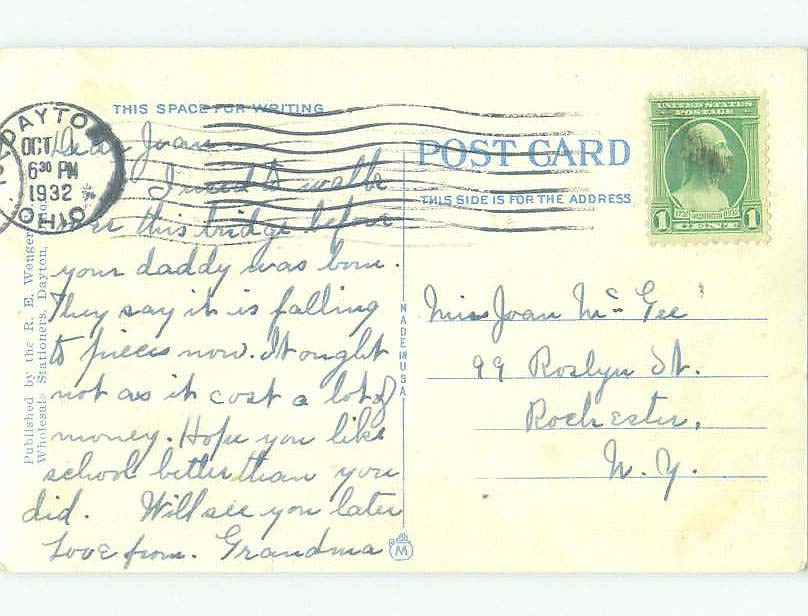 THIS SPACE FOR WRITING
DAYTON
OCT
6 30 PM
1932
OHIO
Dear Joan
I used to walk
over this bridge before
your daddy was born.
They say it is falling
to pieces now. It ought
not as it cost a lot of
money. Hope you like
school better than you
did. Will see you later
Love from. Grandma
Published by the R. E. Wenger
Wholesale Stationers, Dayton,
MADE IN U.S.A.
M
POST CARD
THIS SIDE IS FOR THE ADDRESS
UNITED STATES
POSTAGE
1732 WASHINGTON 1932
1 CENT 1
Miss Joan McGee
99 Roslyn St.
Rochester,
N. Y.